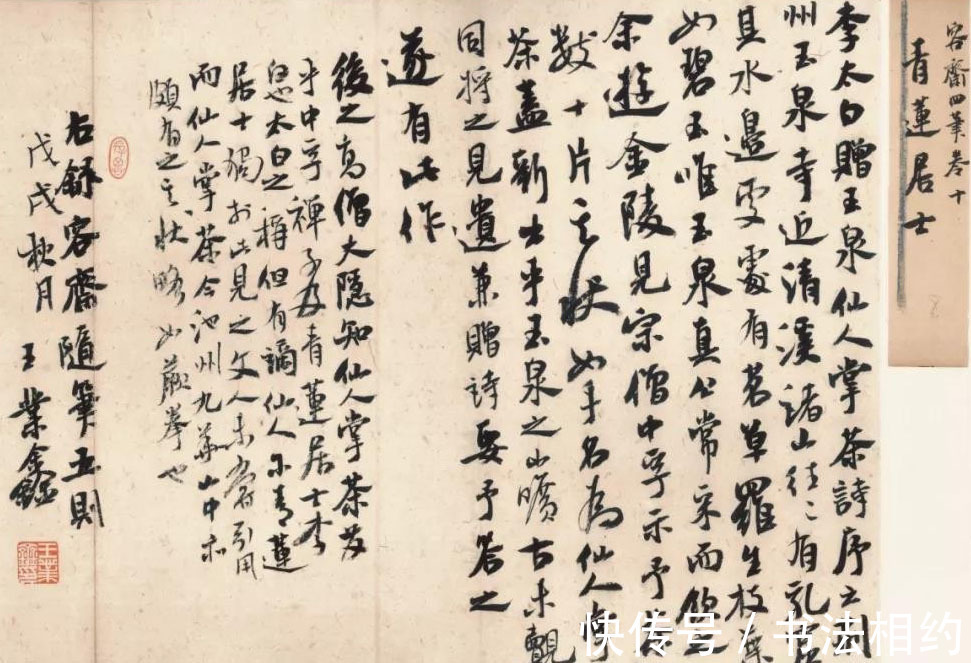 容齋四筆卷十
青蓮居士
李太白贈玉泉仙人掌茶詩序云荆
州玉泉寺近清溪諸山往〻有乳
其水邊處處有茗草羅生枝葉
如碧玉唯玉泉真公常采而飲之
余遊金陵見宗僧中孚示予茶
數十片其狀如手名為仙人掌
茶蓋新出乎玉泉之山曠古未覯
因將之見遺兼贈詩要予答之
遂有此作
後之高僧大隱知仙人掌茶發
乎中孚禪子及青蓮居士李
白也太白之稱但有謫仙人尔青蓮
居士獨於此見之文人未嘗引用
而仙人掌茶今池州九華山中亦
頗有之其狀略如蕨拳也
右錄容齋隨筆五則
戊戌秋月 王業鑫
快传号 / 书法相约